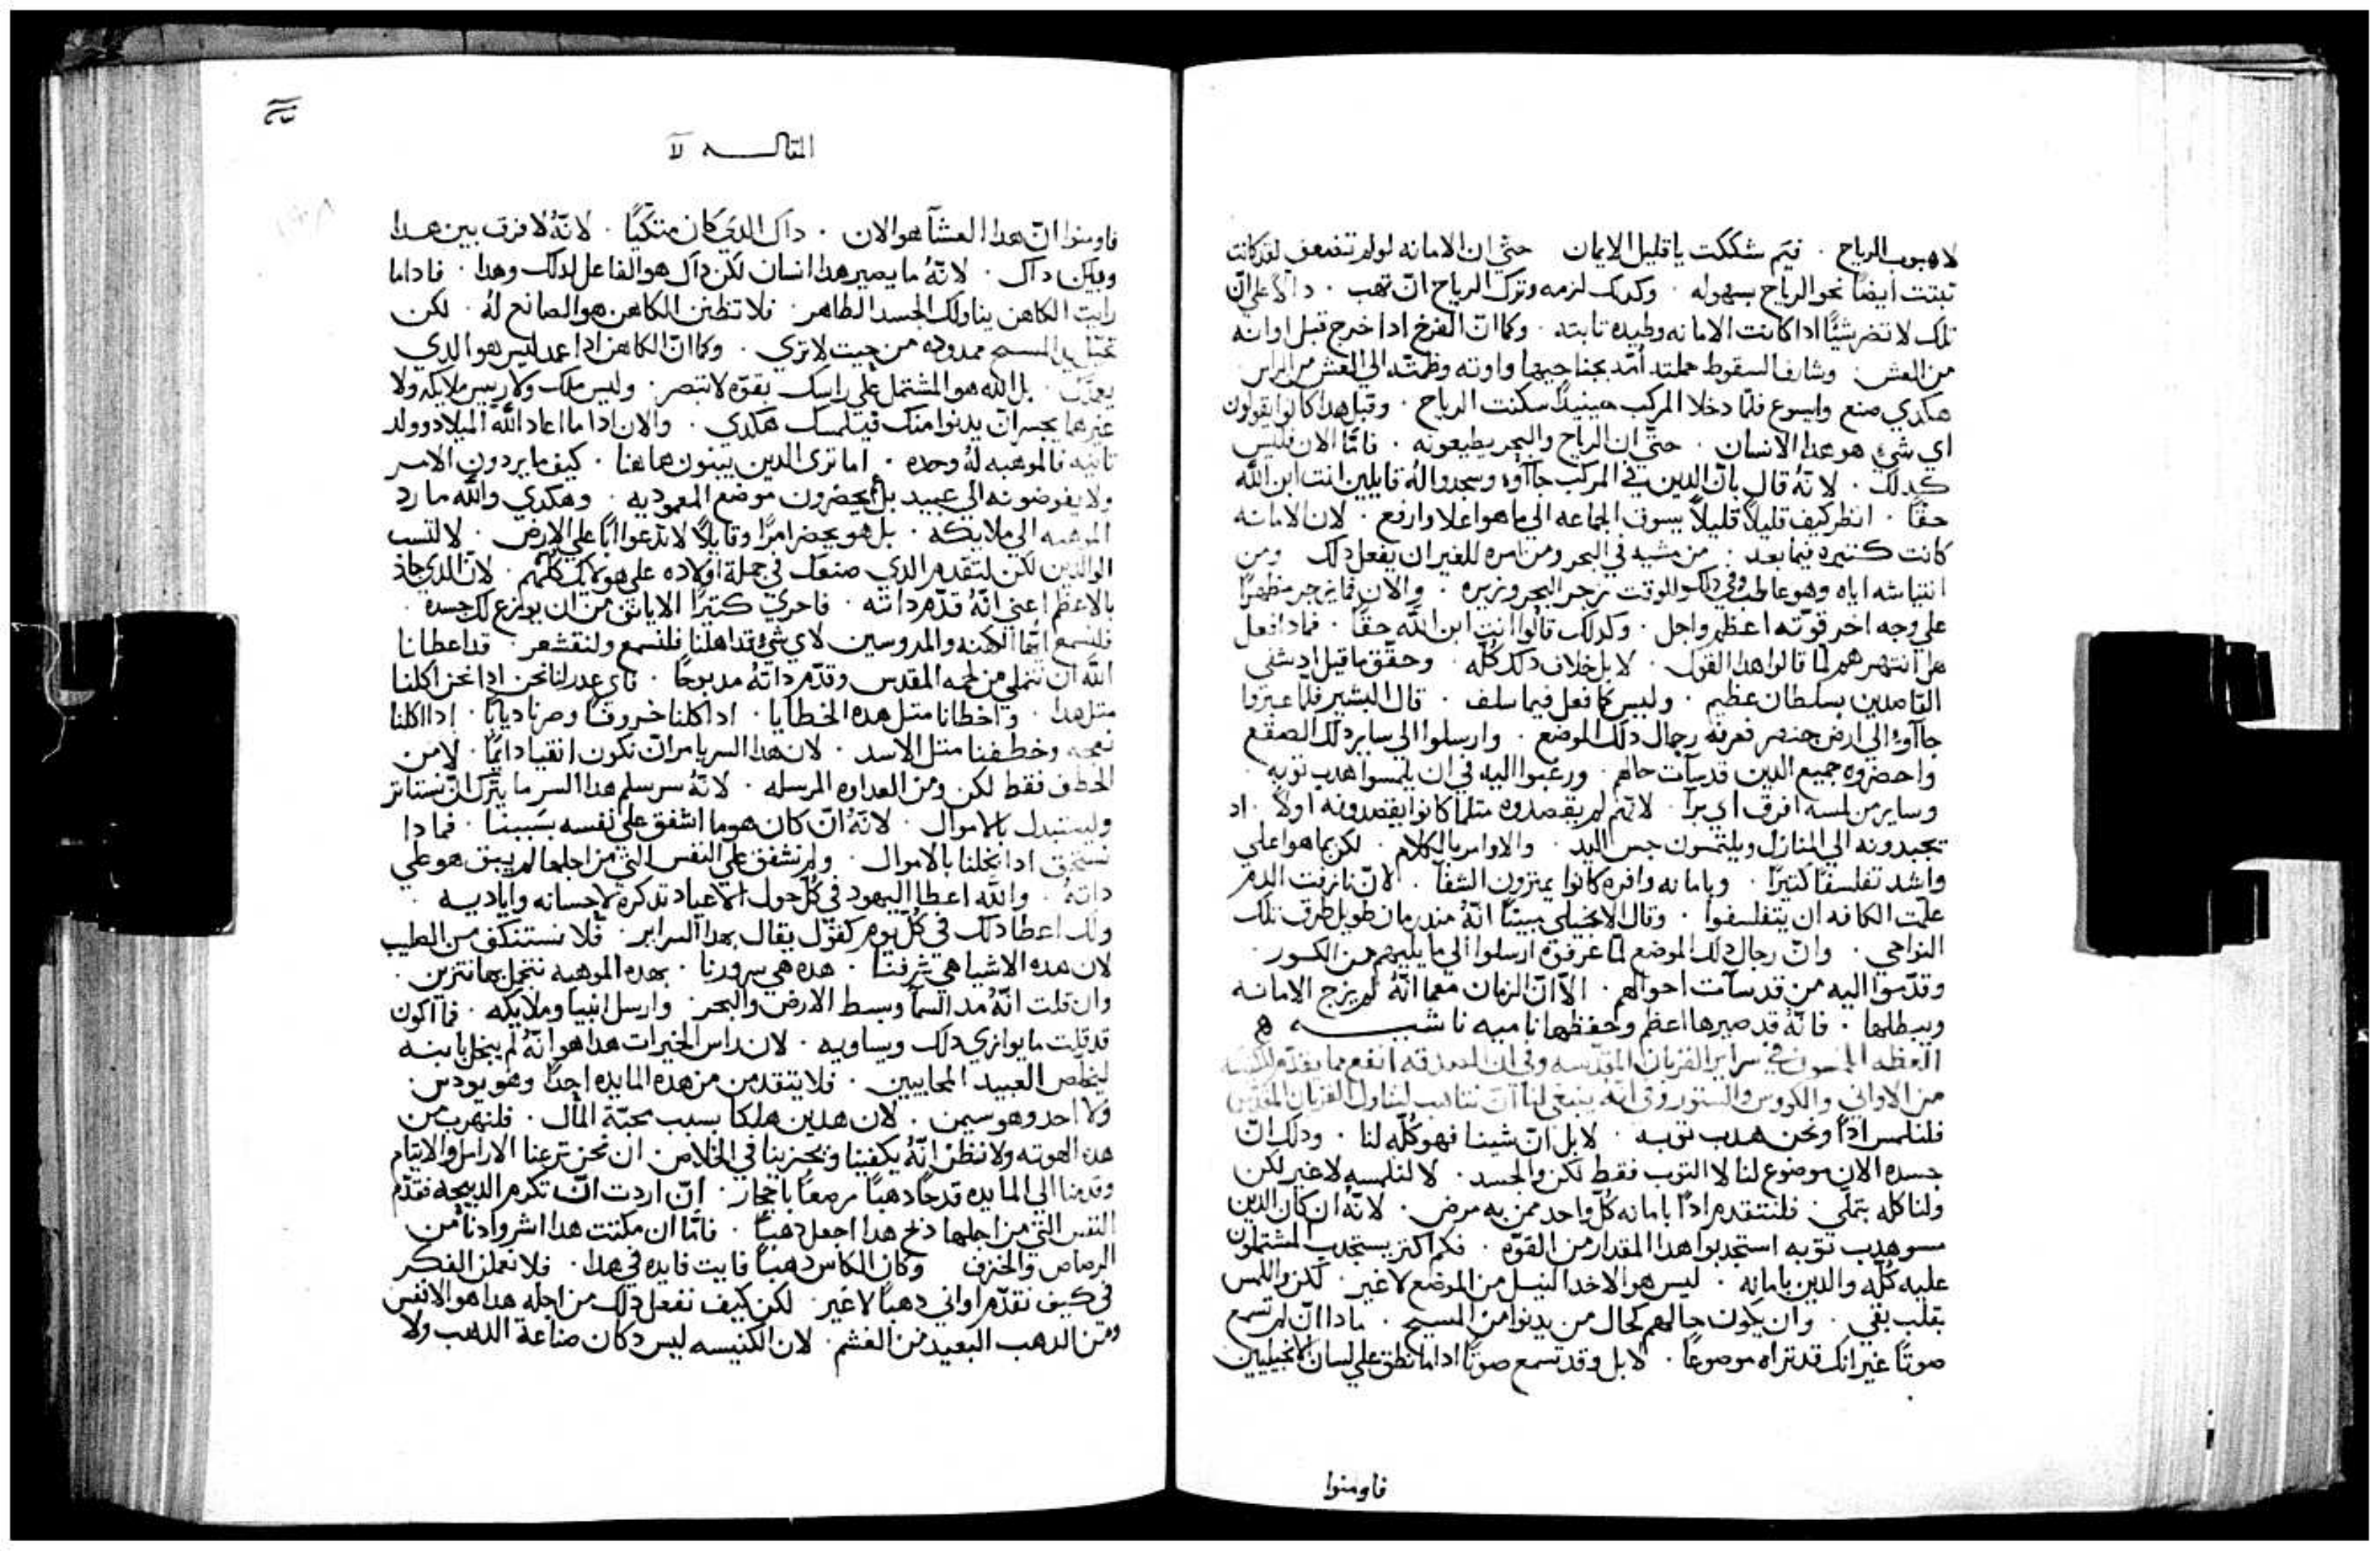 لا هبوب الرياح . فيَم شككت يا قليل الايمان حتي ان الامانه لو لم تضعف لقد كانت
تبتت ايضاً نحو الرياح بسهوله . وكدلك لزمه وترك الرياح انّ تهب . دالاً علي انّ
تلك لا تضر شيًّا ادا كانت الامانه وطيده تابته . وكما انّ الفرخ ادا خرج قبل اوانه
من العش . وشارف السقوط حملته اُمّه بجناحيها واوته وظمّته الي العش من الراس
هكدي صنع وايسوع فلمّا دخلا المركب حينيداً سكنت الرياح . وقبل هدا كانوا يقولون
اي شي هو هدا الانسان . حتّي ان الرياح والبحر يطيعونه . فامّا الان فليس
كدلك . لانهُ قال بانّ الدين في المركب جاآوه وسجدوا لهُ قايلين انت ابن اللّه
حقاً . انظر كيف قليلاً قليلاً يسوق الجماعه الي ما هو اعلا وارفع . لان الامانه
كانت كتيره فيما بعد . من مشيه في البحر ومن امره للغير ان يفعل دلك ومن
انتياشه اياه وهو عاطب وفي دلك الوقت زجر البحر وزبره . والان فما زجر مظهرًا
علي وجه اخر قوّته اعظم واجل . وكدلك قالوا انت ابن اللّه حقاً . فمادا فعل
هل انتهرهم لمّا قالوا هدا القول . لا بل خلاف دلك كُلّه . وحقّق ما قيل اد شفي
القاصدين بسلطان عظيم . وليس كما فعل فيما سلف . قال البشير فلمّا عبروا
جاآوا الي ارض جنصر فعرفه رجال دلك الموضع . وارسلوا الي ساير دلك الصقع
واحضروه جميع الدين قدسآت حالهم . ورغبوا اليه في ان يلمسوا هدب توبه .
وساير من لمسه افرق اي برآ . لانّهم لم يقصدوه متلما كانوا يقصدونه اولاً . اد
يجبدونه الي المنازل ويلتمسون جس اليد . والاوامر بالكلام . لكن بما هو اعلي
واشد تفلسفًا كتيرًا . وبامانه وافره كانوا يمتزون الشفآ . لانّ نازفت الدم
علّمت الكافه ان يتفلسفوا . وقال الانجيلي مبيّناً انّهُ مند زمان طويل طرق تلك
النواحي . وانّ رجال دلك الموضع لمّا عرفوه ارسلوا الي ما يليهم من الكور .
وقدّموا اليه من قدسآت احوالهم . الّا انّ الزمان معما انّهُ لم يزح الامانه
ويبطلها . فانّهُ قد صيرها اعظم وحفظها ناميه ناشبه ه
العظه في سراير القربان المقدّسه وفي ان الصدقه انفع مما يقدّم للكنيسه
من الاواني والكووس والستور وفي انّه ينبغي لنا انّ نتاهب لتناول القربان المقدّس
فلنلمس ادًا ونحن هدب توبه . لا بل انّ شينا فهو كُلّه لنا . ودلك انّ
جسده الان موضوع لنا لا التوب فقط لكن والجسد . لا لنلمسه لا غير لكن
ولناكله بتملّي . فلنتقدم ادًا بامانه كُلّ واحد ممن به مرض . لانّهُ ان كان الدين
مسو هدب توبه استجدبوا هدا المقدار من القوّه . فكم اكتر يستجدب المشتملون
عليه كُلّه والدين بامانه . ليس هو الاخد النيل من الموضع لا غير . لكن واللمس
بقلب نقي . وان يكون حالهم كحال من يدنوا من المسيح . مادا انّ لم تسمع
صوتًا غير انك قد تراه موضوعًا . لا بل وقد تسمع صوتًا ادا ما نطق علي لسان الانجيليين
فاومنوا
المقالـــه لا
فاومنوا انّ هدا العشآ هو الان . داك الدي كان متكيًا . لانّهُ لا فرق بين هدا
وبين داك . لانّهُ ما يصير هدا انسان لكن داك هو الفاعل لدلك وهدا . فادا ما
رايت الكاهن يناولك الجسد الطاهر . فلا تظنن الكاهن هو الصانع لهُ . لكن
تخيّل يد المسيح ممدوده من حيت لا تري . وكما انّ الكاهن ادا عمد ليس هو الدي
يعمدك . بل اللّه هو المشتمل علي راسك بقوّه لا تبصر . وليس ملك ولا رييس ملايكه ولا
غيرهما يجسر انّ يدنوا منك فيلمسك هكدي . والان ادا ما اعاد اللّه الميلاد وولد
تانيه فالموهبه لهُ وحده . اما تري الدين يبنون هاهنا . كيف ما يردون الامر
ولا يفوضونه الي عبيد بل يحضرون موضع المعموديه . وهكدي واللّه ما رد
الموهبه الي ملايكه . بل هو يحضر امرًا وقايلاً لا تدعوا ابًا علي الارض . لا لتسب
الوالدين لكن لتقدم الدي صنعك في جملة اولاده علي هولايك كُلّهم . لانّ الدي جاد
بالاعظم اعني انّهُ قدّم داته . فاحري كتيرًا الا يانف من ان يوزع لك جسده .
فلنسمع ايّها الكهنه والمروسين لاي شي قد اهلنا فلنسمع ولنقشعر . قد اعطانا
اللّه ان نتملي من لحمه المقدس وقدّم داتهُ مدبوحًا . فاي عدر لنا نحن ادا نحن اكلنا
متل هدا . واخطانا متل هده الخطايا . ادا كلنا خروفًا وصرنا ديابًا . ادا اكلنا
نعجه وخطفنا متل الاسد . لان هدا السر يامر انّ نكون انقيا دايمًا . لا من
الخطف فقط لكن ومن العداوه المرسله . لانّهُ سر سلم هدا السر ما يترك انّ نستاتر
وليستبدل بالاموال . لانّهُ انّ كان هو ما اشفق علي نفسه بسببنا . فمادا
نستحق ادا بخلنا بالاموال . ولم نشفق علي النفس التي من اجلها لم يبق هو علي
داتهُ . واللّه اعطا اليهود في كُلّ حول الاعياد تدكره لاحسانه واياديه .
ولك اعطا دلك في كُلّ يوم كقول يقال بهدا السراير . فلا نستنكف من الصليب
لان هده الاشيا هي شرفنا . هده هي سرورنا . بهده الموهبه نتجمل بها نتزين .
وان قلت انّهُ مد السمآ وبسط الارض والبحر . وارسل انبيا وملايكه . فما اكون
قد قلت ما يوازي دلك ويساويه . لان راس الخيرات هدا هو انّهُ لم يبخل بابنه
ليخلّص العبيد المحاببين . فلا يتقدمن من هده المايده احدًا وهو يودس .
ولا احد وهو سيمن . لان هدين هلكا بسبب محبّة المال . فلنهرب من
هده الهوته ولا نظن انّهُ يكفينا ويجزينا في الخلاص . ان نحن نزعنا الارامل والايتام
وقدمنا الي المايده قدحًا دهبًا مرصعًا باحجار . انّ اردت انّ تكرم الدبيحه فقدّم
النفس التي من اجلها دبح هدا اجعل دهبًا . فامّا ان مكتت هدا اشر وادنا من
الرصاص والخزف وكان الكاس دهبًا فايت فايده في هدا . فلا نعملن الفكر
في كيف نقدّم اواني دهبًا لا غير . لكن كيف نفعل دلك من اجله هدا هو الانفس
ومن الدهب البعيد من الغشم . لان الكنيسه ليس دكان صناعة الدهب ولا